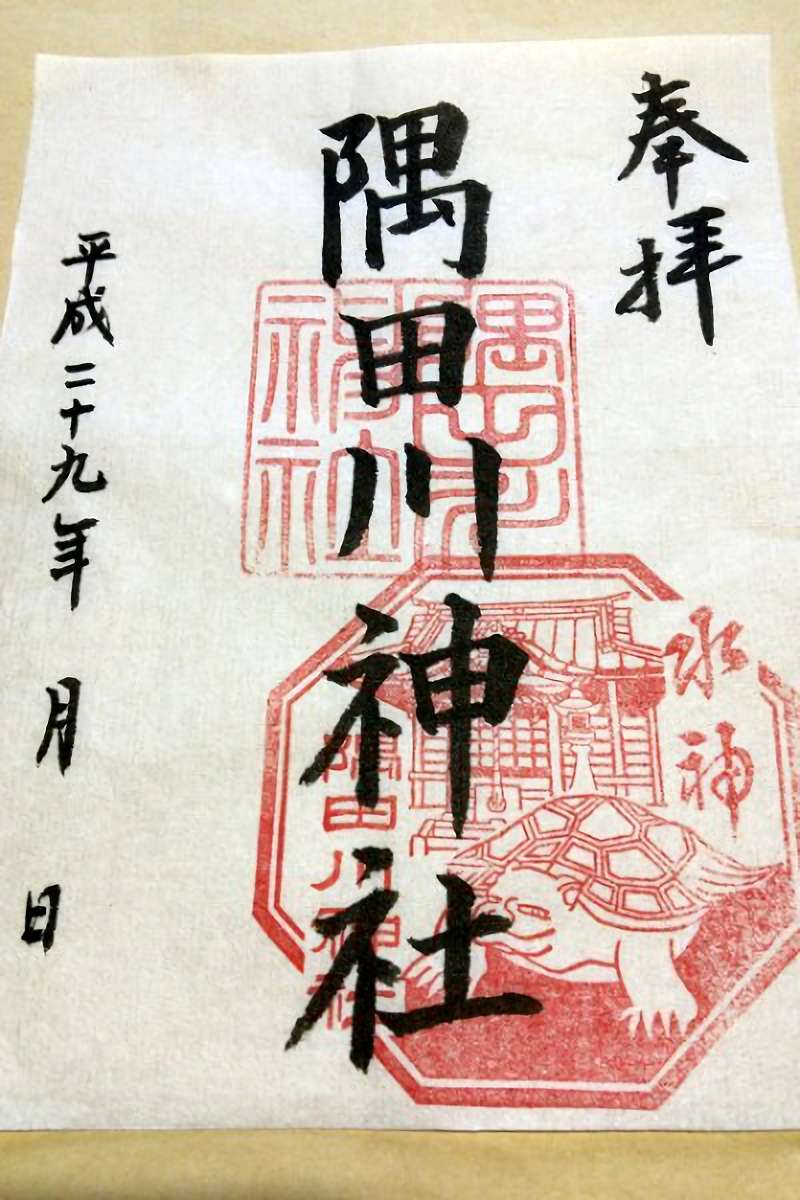 奉拝
隅田川神社
平成二十九年 月 日
水神
隅田川神社